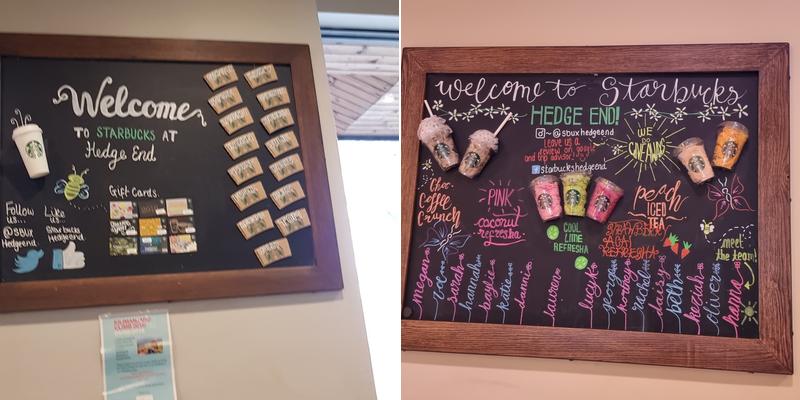 Welcome
TO STARBUCKS AT
Hedge End
Gift Cards.
Follow
us...
@SBUX
Hedgeend
Like
us...
Starbucks
Hedgeend
welcome to Starbucks
HEDGE END!
~ @sbuxhedgeend
leave us a
review on google
and trip advisor!
starbuckshedgeend
WE
♡
Choc
Coffee
Crunch
PINK
coconut
refresha
COOL
LIME
REFRESHA
peach
ICED
TEA
STRAWBERRY
ACAI
REFRESHA
meet
the team!
megan
zoe
sarah
hannah
baylie
katie
danni
lauren
lucy
georgia
kourtney
rachel
daisy
beth
keziah
oliver
hanna